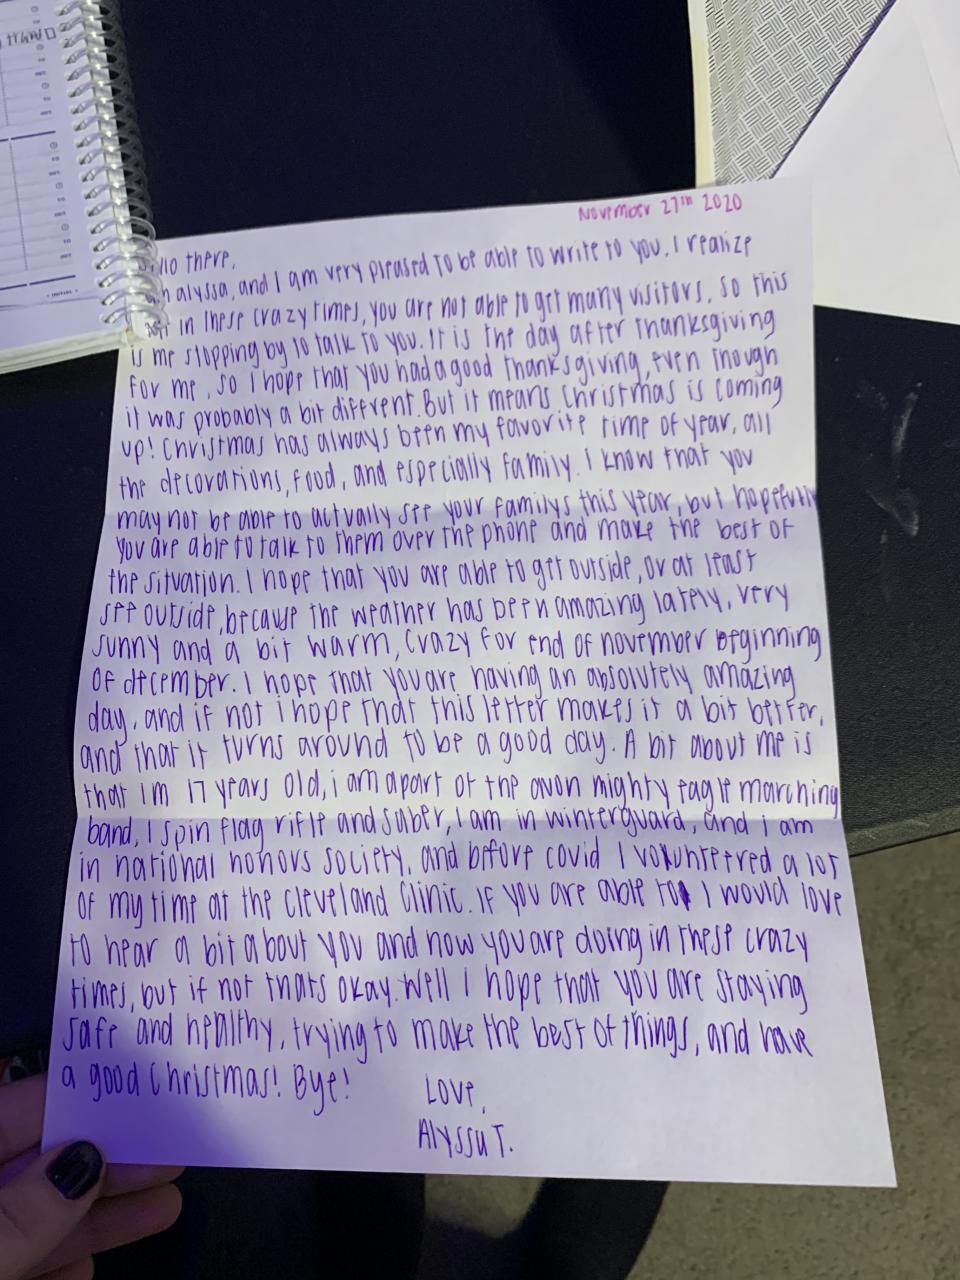 November 27th 2020
there,
alyssa, and I am very pleased to be able to write to you. I realize
in these crazy times, you are not able to get many visitors, so this
is me stopping by to talk to you. It is the day after thanksgiving
for me, so I hope that you had a good thanksgiving, even though
it was probably a bit different. But it means Christmas is coming
up! Christmas has always been my favorite time of year, all
the decorations, food, and especially family. I know that you
may not be able to actually see your familys this year, but hopefully
you are able to talk to them over the phone and make the best of
the situation. I hope that you are able to get outside, or at least
see outside, because the weather has been amazing lately, very
sunny and a bit warm, crazy for end of november beginning
of december. I hope that you are having an absolutely amazing
day, and if not i hope that this letter makes it a bit better,
and that it turns around to be a good day. A bit about me is
that Im 17 years old, i am apart of the avon mighty eagle marching
band, I spin flag rifle and saber, I am in winterguard, and i am
in national honors society, and before covid I volunteered a lot
of my time at the Cleveland Clinic. If you are able to I would love
to hear a bit about you and how you are doing in these crazy
times, but if not thats okay. Well I hope that you are staying
safe and healthy, trying to make the best of things, and have
a good Christmas! Bye!
Love,
Alyssa T.